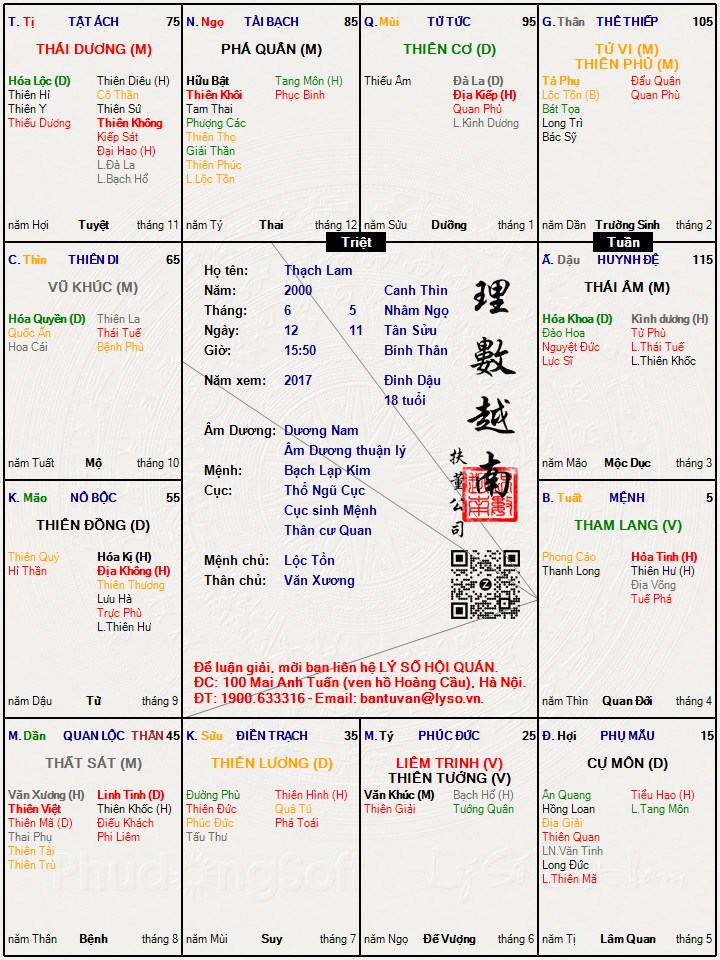 T. Tị TẬT ÁCH 75
THÁI DƯƠNG (M)
Hóa Lộc (Đ) Thiên Diêu (H)
Thiên Hỉ Cô Thần
Thiên Y Thiên Sứ
Thiếu Dương Thiên Không
Kiếp Sát
Đại Hao (H)
L.Đà La
L.Bạch Hổ
năm Hợi Tuyệt tháng 11
N. Ngọ TÀI BẠCH 85
PHÁ QUÂN (M)
Hữu Bật Tang Môn (H)
Thiên Khôi Phục Binh
Tam Thai
Phượng Các
Thiên Thọ
Giải Thần
Thiên Phúc
L.Lộc Tồn
năm Tý Thai tháng 12
Q. Mùi TỬ TỨC 95
THIÊN CƠ (Đ)
Thiếu Âm Đà La (Đ)
Địa Kiếp (H)
Quan Phủ
L.Kình Dương
năm Sửu Dưỡng tháng 1
G. Thân THÊ THIẾP 105
TỬ VI (M)
THIÊN PHỦ (M)
Tả Phụ Đẩu Quân
Lộc Tồn (B) Quan Phủ
Bát Tọa
Long Trì
Bác Sỹ
năm Dần Trường Sinh tháng 2
Triệt
Tuần
C. Thìn THIÊN DI 65
VŨ KHÚC (M)
Hóa Quyền (Đ) Thiên La
Quốc Ấn Thái Tuế
Hoa Cái Bệnh Phù
năm Tuất Mộ tháng 10
Họ tên: Thạch Lam
Năm: 2000 Canh Thìn
Tháng: 6 5 Nhâm Ngọ
Ngày: 12 11 Tân Sửu
Giờ: 15:50 Bính Thân
Năm xem: 2017 Đinh Dậu
18 tuổi
Âm Dương: Dương Nam
Âm Dương thuận lý
Mệnh: Bạch Lạp Kim
Cục: Thổ Ngũ Cục
Cục sinh Mệnh
Thân cư Quan
Mệnh chủ: Lộc Tồn
Thân chủ: Văn Xương
理數越南
扶董公司
Để luận giải, mời bạn liên hệ LÝ SỐ HỘI QUÁN.
ĐC: 100 Mai Anh Tuấn (ven hồ Hoàng Cầu), Hà Nội.
ĐT: 1900.633316 - Email: bantuvan@lyso.vn.
Ấ. Dậu HUYNH ĐỆ 115
THÁI ÂM (M)
Hóa Khoa (Đ) Kình dương (H)
Đào Hoa Tử Phù
Nguyệt Đức L.Thái Tuế
Lực Sĩ L.Thiên Khốc
năm Mão Mộc Dục tháng 3
K. Mão NÔ BỘC 55
THIÊN ĐỒNG (Đ)
Thiên Quý Hóa Kị (H)
Hỉ Thần Địa Không (H)
Thiên Thương
Lưu Hà
Trực Phù
L.Thiên Hư
năm Dậu Tử tháng 9
B. Tuất MỆNH 5
THAM LANG (V)
Phong Cáo Hỏa Tinh (H)
Thanh Long Thiên Hư (H)
Địa Võng
Tuế Phá
năm Thìn Quan Đới tháng 4
M. Dần QUAN LỘC THÂN 45
THẤT SÁT (M)
Văn Xương (H) Linh Tinh (Đ)
Thiên Việt Thiên Khốc (H)
Thiên Mã (Đ) Điếu Khách
Thai Phụ Phi Liêm
Thiên Tài
Thiên Trù
năm Thân Bệnh tháng 8
K. Sửu ĐIỀN TRẠCH 35
THIÊN LƯƠNG (Đ)
Đường Phù Thiên Hình (H)
Thiên Đức Quả Tú
Phúc Đức Phá Toái
Tấu Thư
năm Mùi Suy tháng 7
M. Tý PHÚC ĐỨC 25
LIÊM TRINH (V)
THIÊN TƯỚNG (V)
Văn Khúc (M) Bạch Hổ (H)
Thiên Giải Tướng Quân
năm Ngọ Đế Vượng tháng 6
Đ. Hợi PHỤ MẪU 15
CỰ MÔN (Đ)
Ân Quang Tiểu Hao (H)
Hồng Loan L.Tang Môn
Địa Giải
Thiên Quan
LN.Văn Tinh
Long Đức
L.Thiên Mã
năm Tị Lâm Quan tháng 5